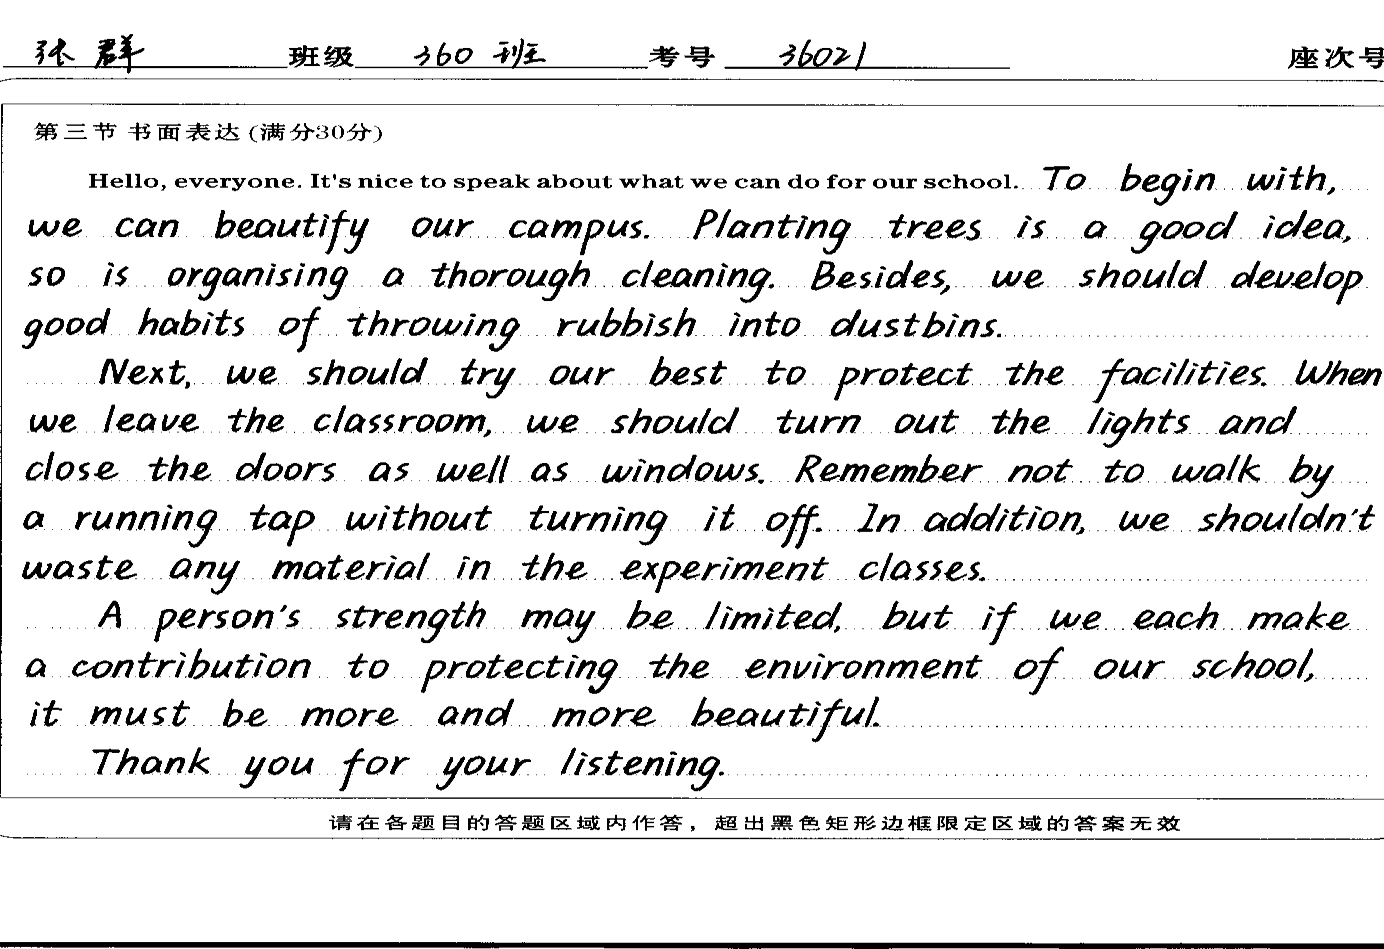 张群 班级 360班 考号 36021 座次号
第三节 书面表达 (满分30分)
Hello, everyone. It's nice to speak about what we can do for our school. To begin with,
we can beautify our campus. Planting trees is a good idea,
so is organising a thorough cleaning. Besides, we should develop
good habits of throwing rubbish into dustbins.
Next, we should try our best to protect the facilities. When
we leave the classroom, we should turn out the lights and
close the doors as well as windows. Remember not to walk by
a running tap without turning it off. In addition, we shouldn't
waste any material in the experiment classes.
A person's strength may be limited, but if we each make
a contribution to protecting the environment of our school,
it must be more and more beautiful.
Thank you for your listening.
请在各题目的答题区域内作答，超出黑色矩形边框限定区域的答案无效